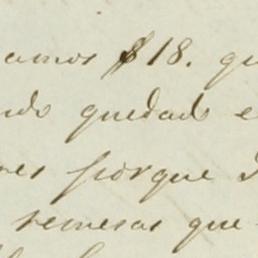 amos $18. qu
ndo quedado e
res porque d
remesas que